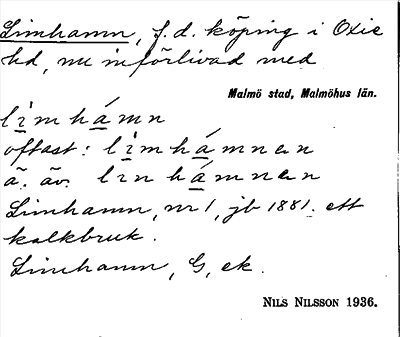 Limhamn, f.d. köping i Oxie
hd, nu införlivad med
Malmö stad, Malmöhus län.
lìmhámn
oftast: lìmhámnen
ä. äv. linhámnen
Limhamn, nr 1, jb 1881. ett
kalkbruk.
Limhamn, G, ek.
NILS NILSSON 1936.